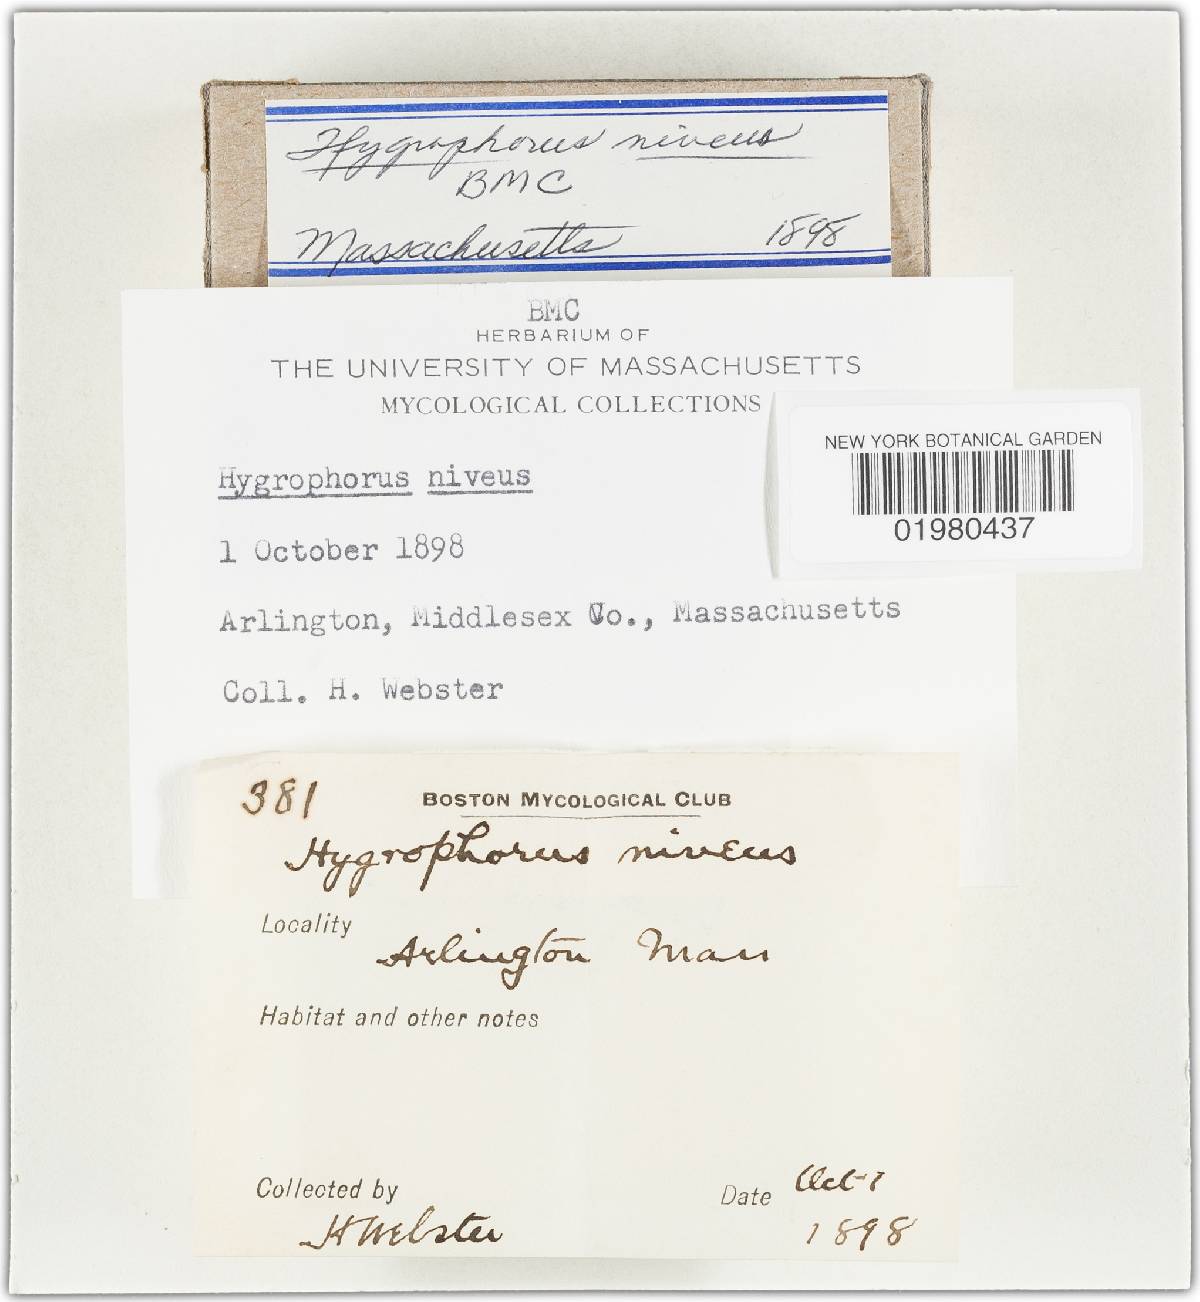 Hygrophorus niveus
BMC
Massachusetts 1898
BMC
HERBARIUM OF
THE UNIVERSITY OF MASSACHUSETTS
MYCOLOGICAL COLLECTIONS
NEW YORK BOTANICAL GARDEN
01980437
Hygrophorus niveus
1 October 1898
Arlington, Middlesex Co., Massachusetts
Coll. H. Webster
381 BOSTON MYCOLOGICAL CLUB
Hygrophorus niveus
Locality
Arlington Mass
Habitat and other notes
Collected by Date Oct-1
H Webster 1898